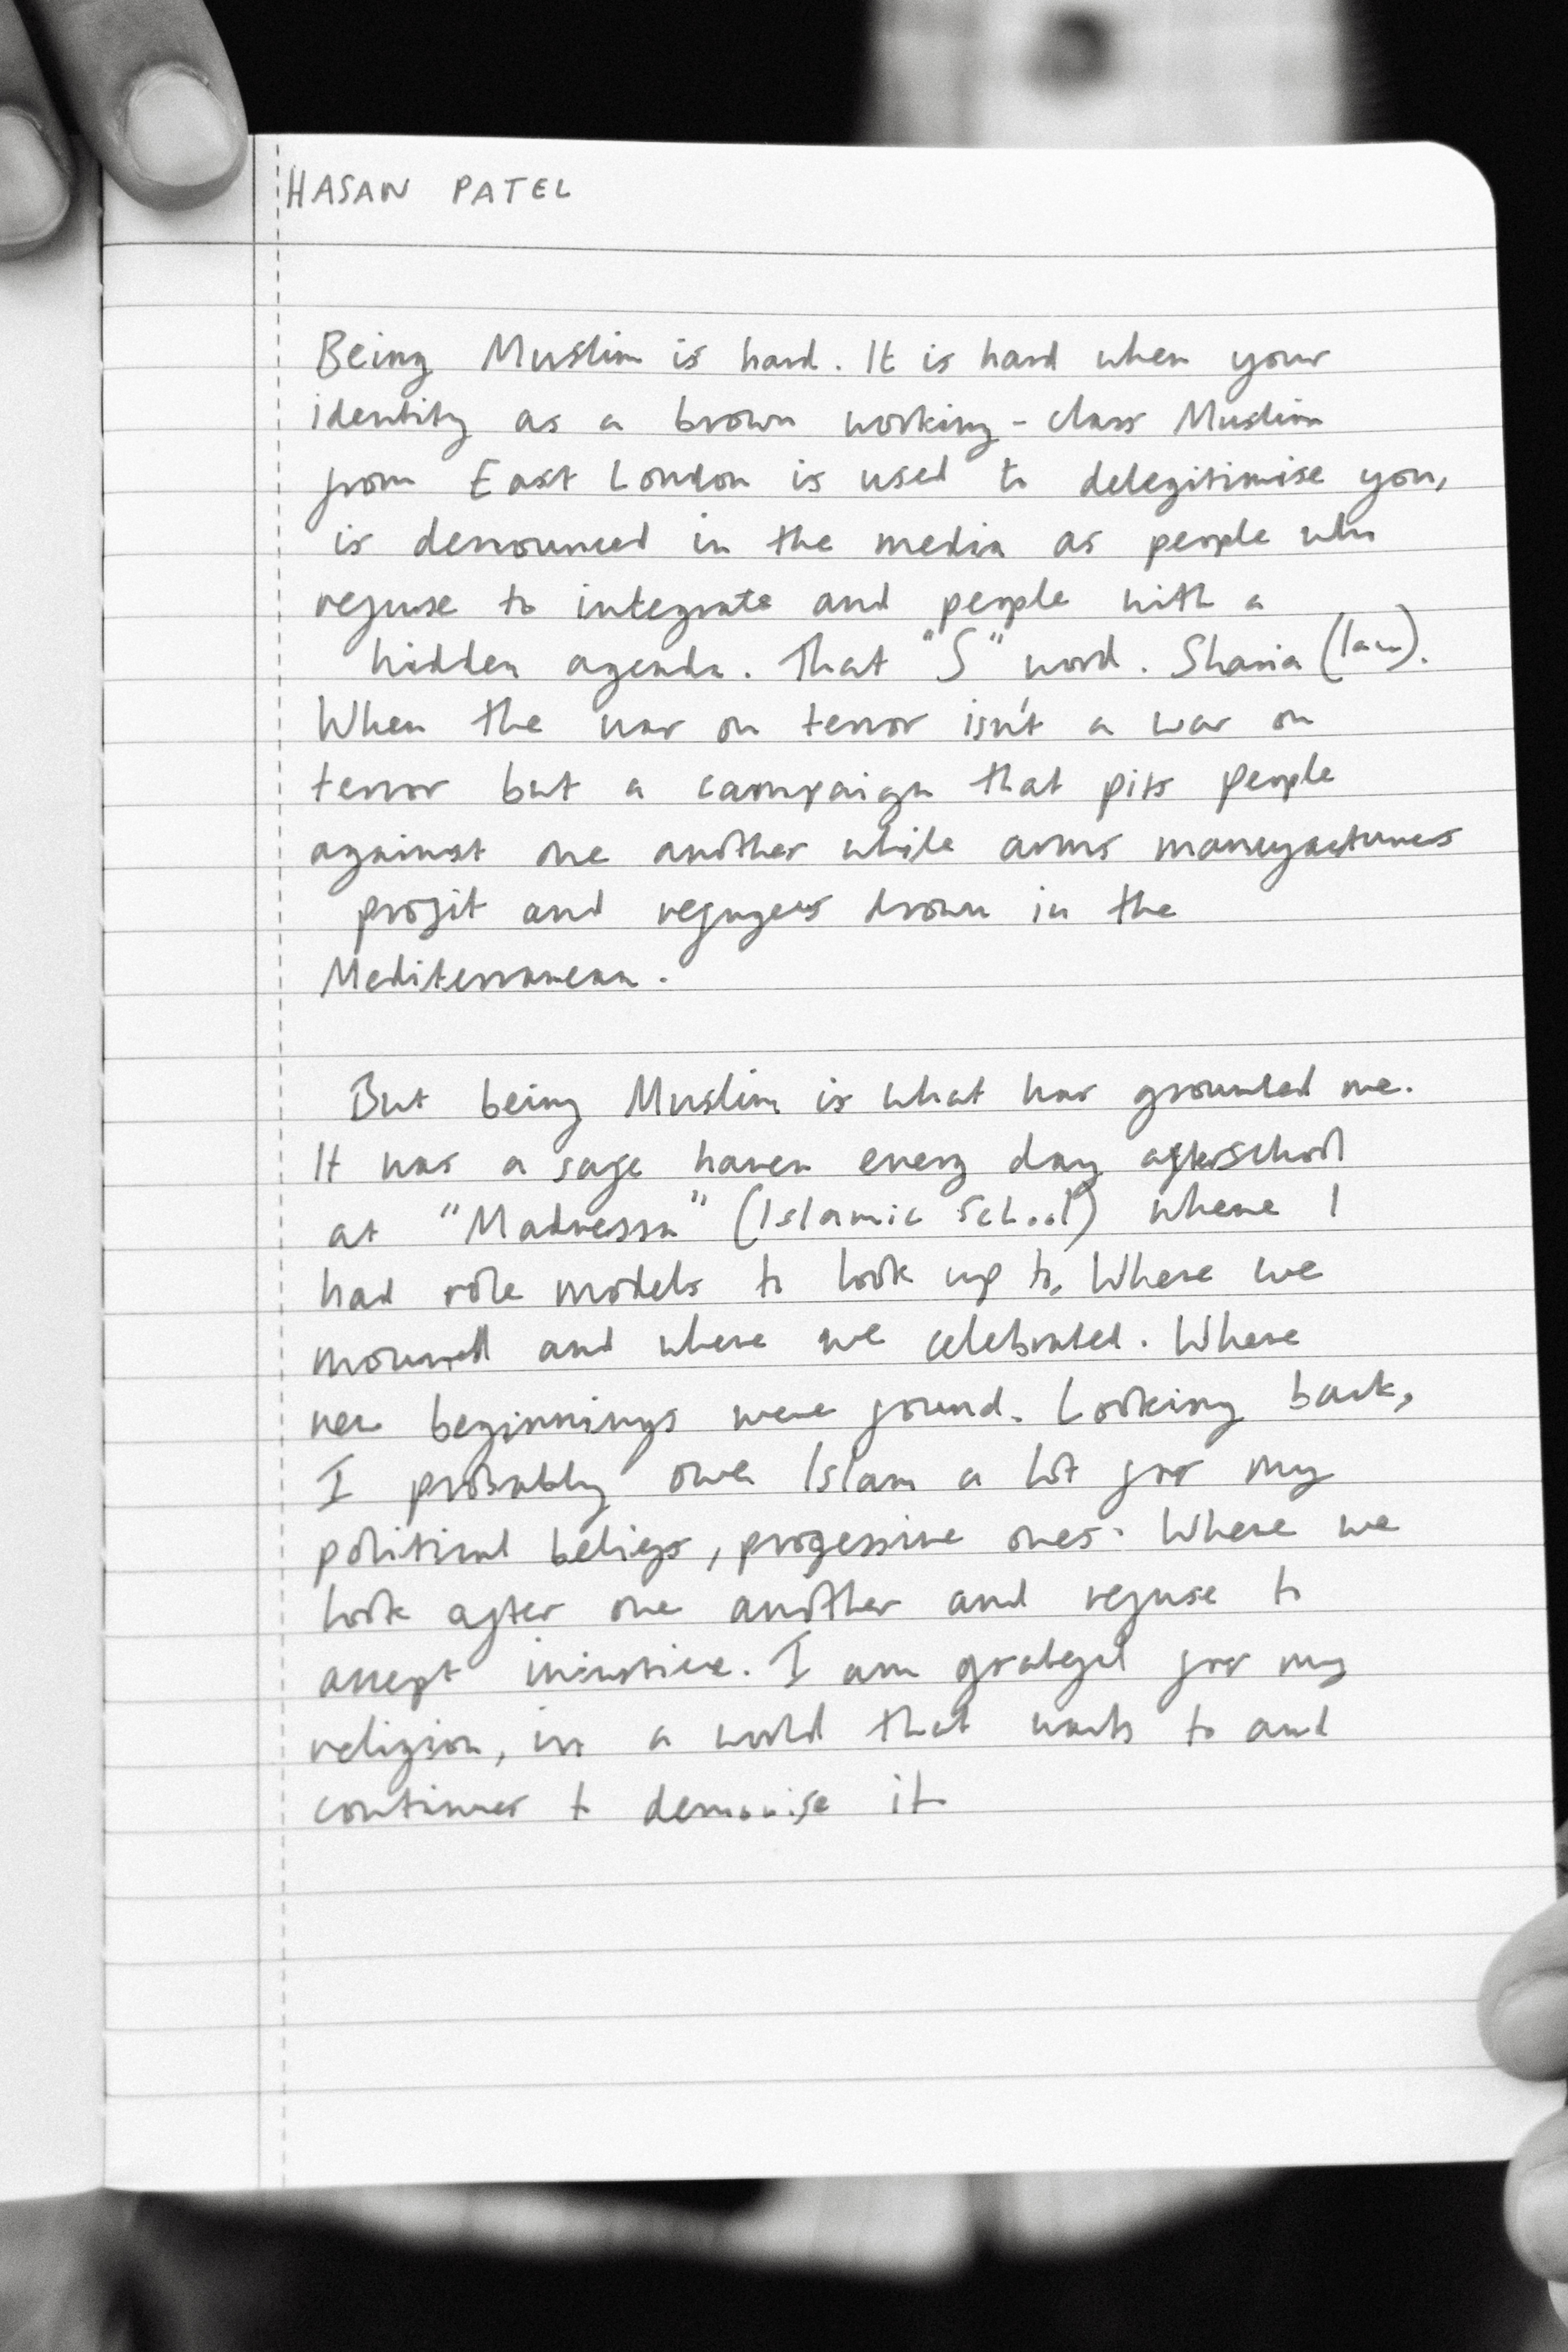 HASAN PATEL
Being Muslim is hard. It is hard when your
identity as a brown working-class Muslim
from East London is used to delegitimise you,
is denounced in the media as people who
refuse to integrate and people with a
hidden agenda. That "S" word. Sharia (law).
When the war on terror isn't a war on
terror but a campaign that pits people
against one another while arms manufactures
profit and refugees drown in the
Mediterranean.
But being Muslim is what has grounded me.
It was a safe haven every day afterschool
at "Madressa" (Islamic School) where I
had role models to look up to. Where we
mourned and where we celebrated. Where
new beginnings were found. Looking back,
I probably owe Islam a lot for my
political beliefs, progessive ones. Where we
look after one another and refuse to
accept injustice. I am grateful for my
religion, in a world that wants to and
continues to demonise it